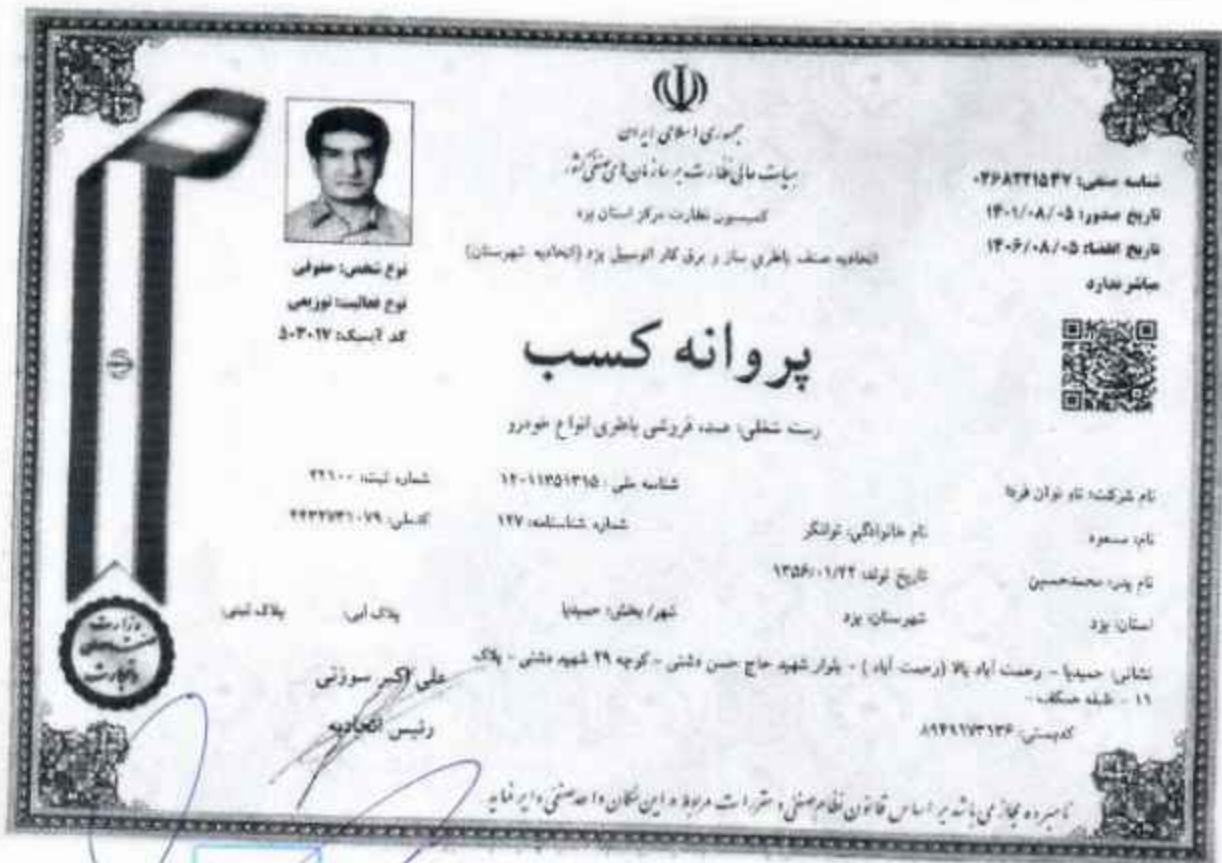 جمهوری اسلامی ایران
هیات عالی نظارت بر سازمان‌های صنفی کشور
کمیسیون نظارت مرکز استان یزد
اتحادیه صنف باطری ساز و برق کار اتومبیل یزد (اتحادیه شهرستان)
شناسه صنفی: ۰۴۶۸۲۲۱۵۴۷
تاریخ صدور: ۱۴۰۱/۰۸/۰۵
تاریخ انقضا: ۱۴۰۶/۰۸/۰۵
مباشر ندارد
نوع شخص: حقوقی
نوع فعالیت: توزیعی
کد آیسیک: ۵۰۳۰۱۷
پروانه کسب
رسته شغلی: عمده فروشی باطری انواع خودرو
نام شرکت: توان فردا شناسه ملی: ۱۴۰۱۱۳۵۱۳۱۵ شماره ثبت: ۲۲۱۰۰
نام: مسعود نام خانوادگی: توانگر شماره شناسنامه: ۱۲۷ کدملی: ۴۴۳۲۷۳۱۰۷۹
نام پدر: محمدحسین تاریخ تولد: ۱۳۵۶/۰۱/۲۲
استان: یزد شهرستان: یزد شهر/ بخش: حمیدیا پلاک آبی: پلاک ثبتی:
نشانی: حمیدیا - رحمت آباد بالا (رحمت آباد ) - بلوار شهید حاج حسن دشتی - کوچه ۲۹ شهید دشتی - پلاک
۱۱ - طبقه همکف -
کدپستی: ۸۹۴۹۱۷۳۱۳۶
علی اکبر سوزنی
رئیس اتحادیه
نامبرده مجاز می باشد بر اساس قانون نظام صنفی و مقررات مربوط در این مکان واحد صنفی دایر نماید
وزارت
صنعت، معدن
و تجارت